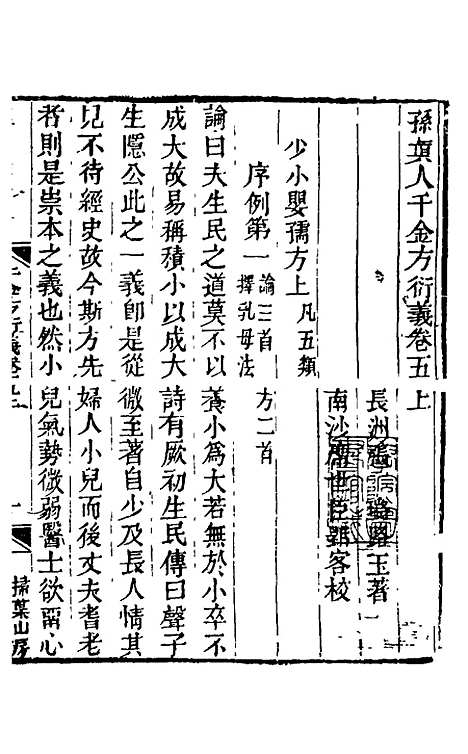 孫真人千金方衍義卷五上
長洲張璐路玉著
南沙席世臣郢客校
少小嬰孺方上 凡五類
序例第一 論三首 方二首
擇乳母法
論曰夫生民之道莫不以養小爲大若無於小卒不
成大故易稱積小以成大詩有厥初生民傳曰聲子
生隱公此之一義卽是從微至著自少及長人情其
見不待經史故今斯方先婦人小兒而後丈夫耆老
者則是崇本之義也然小兒氣勢微弱醫士欲留心
千金方衍義卷五上
一
掃葉山房